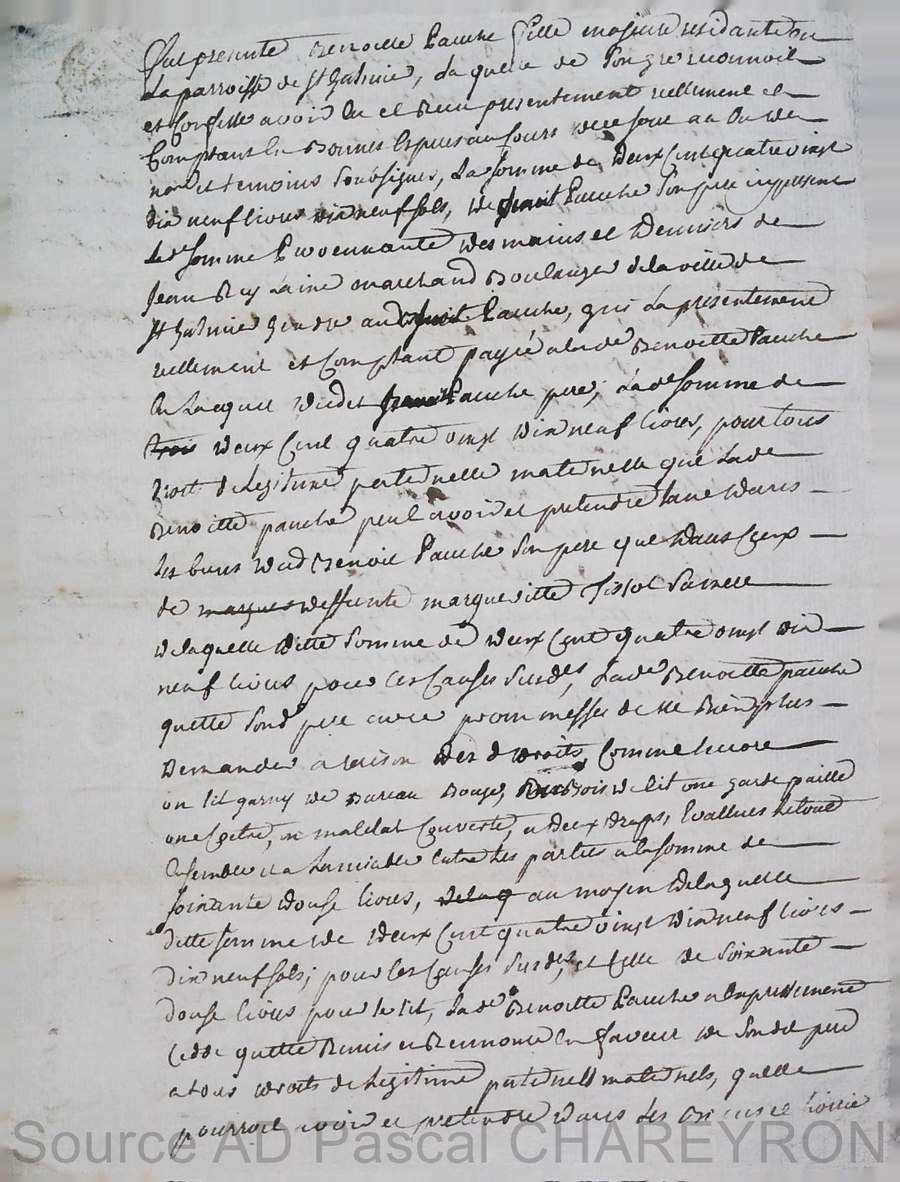 fut presente Benoitte Pauche fille majeure residante en
La parroisse de St Galmie, Laquelle de son gré reconnoit
et confesse avoir Eu et Reçu presentement reellement et
Comptant En Bonnes Especes au cours de ce jour au Vu de
nore et temoins soubsignes, La somme de deux Cent quatre vingt
dix neuf livres dix neuf sols, de Benoit Pauche son pere icy present
Lade somme Provennante des mains et deniers de
Jean Rey Laine marchand Boulanger de la ville de
St Galmie Gendre aud Benoit Pauche, qui La presentement
reellement et Comptant payé a lade Benoitte Pauche
En Lacquit dudit Benoit Pauche pere, Lade somme de
trois deux Cent quatre vingt dix neuf livres, pour tous
droit de Legitime paternelle maternelle que Lade
Benoitte pauche peut avoir et pretendre tant dans
les biens dud Benoit Pauche son pere que dans Ceux
de marguer deffunte margueritte Tissot Sa mere
de laquelle ditte somme de deux Cent quatre vingt dix
neuf livres pour les Causes Susdes, Lade Benoitte pauche
quitte sond pere avec prommesses de ne Rien plus
Demander a raison des d droits, Comme Encore
un lit garny de Bureau Rouge, Bois de lit une garde paille
une Coitre, un matelat Couverte, et deux draps, Evallués Le tout
Ensemble et a Lamiable Entre les parties a la somme de
soixante douse livres, delaq au moyen de laquelle
ditte somme de deux Cent quatre vingt dix neuf livres
dix neuf sols, pour les Causes Susdes, et Celle de soixante
douse livres pour le lit, Lade Benoitte Pauche a Expressement
Cedde quitte Remis et Rennoncé En faveur de Son dit pere
a tous droits de Legitime paternels maternels, quelle
pourroit avoir et pretendre dans Les Biens et hoirie
Source AD Pascal CHAREYRON